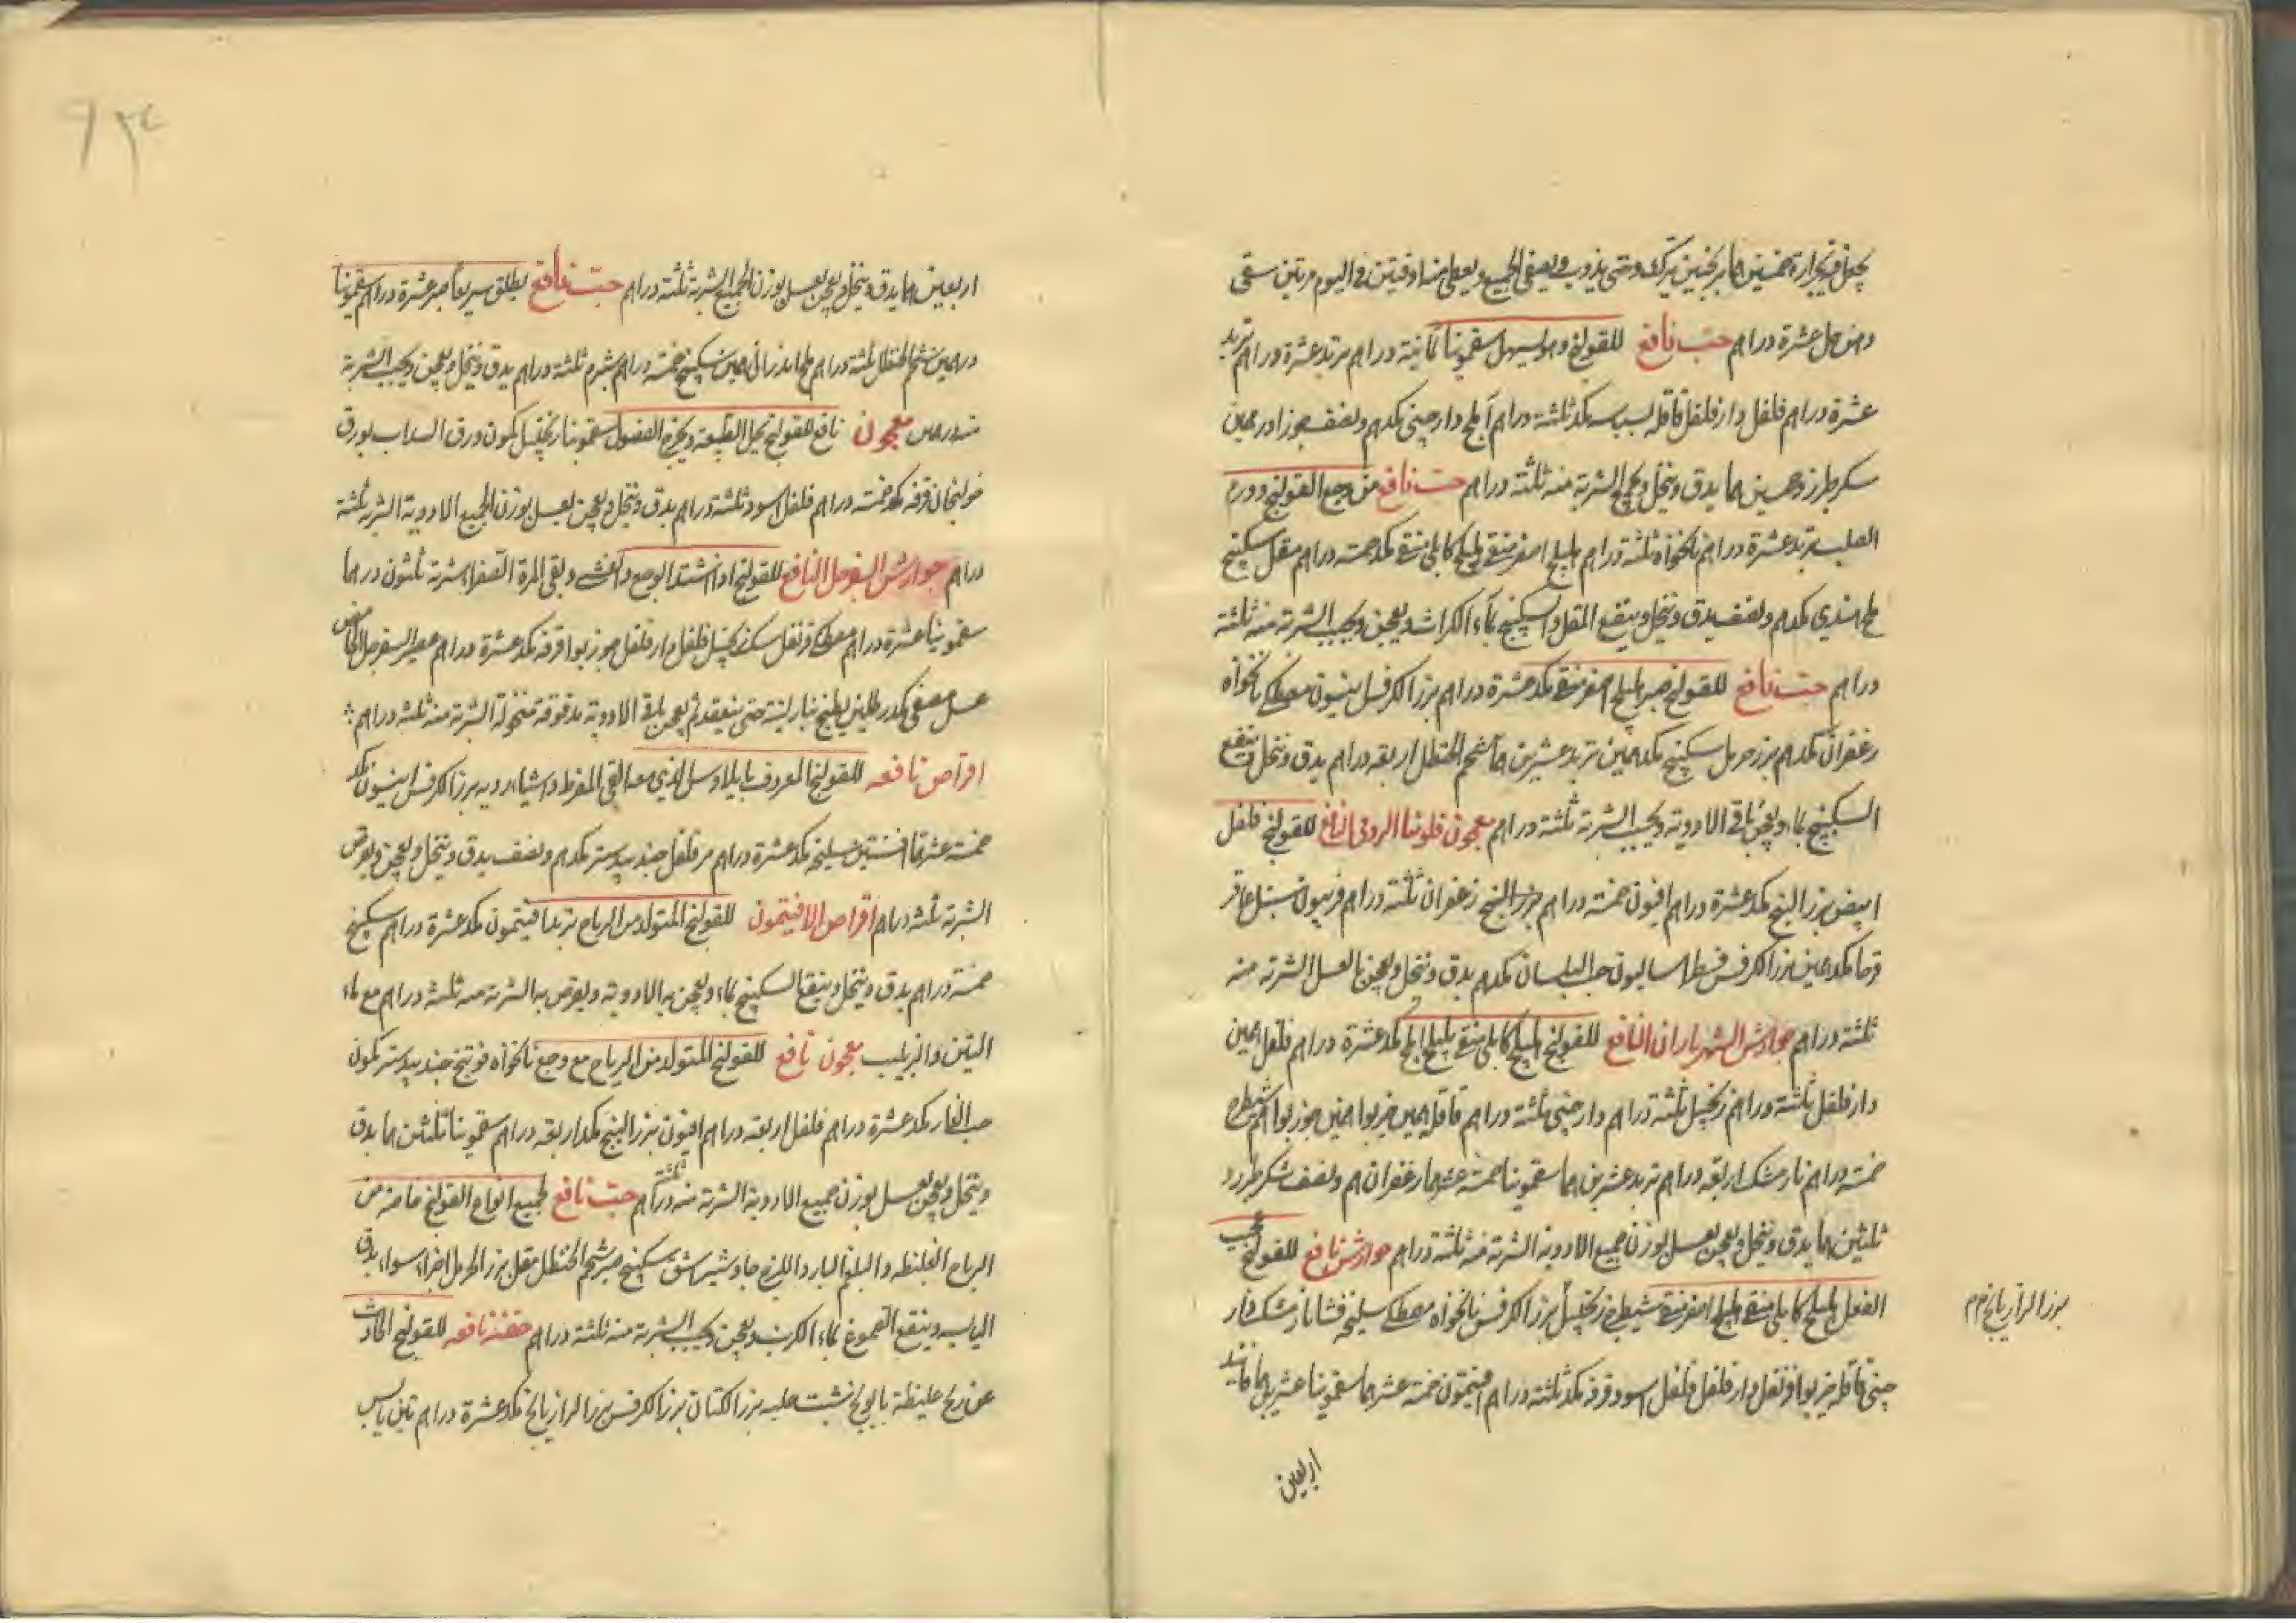 يجعل فيه خيارة خمسين درهما ترنجبين يترك حتى يذوب فيه ويصفى الجميع ويعطى منه اوقيتين في اليوم مرتين سقى
دهن حل عشرة دراهم حب نافع للقولنج وهو يسهل سقمونيا ثمانية دراهم تربد عشرة دراهم
عشرة دراهم فلفل دارفلفل قاقله بسباسه مكد ثلثة دراهم املج دارچيني مكدهم ونصف جوزا درهمين
سكر طبرزد خمسين درهما يدق وينخل ويجمع الشربة منه ثلثة دراهم حب نافع من وجع القولنج وورم
الصلب تربد عشرة دراهم نانخواه ثلثة دراهم هليلج اصفر منقى هليلج كابلي منقى مكد خمسة دراهم مقل سكبينج
ملح هندي مكدهم ونصف يدق وينخل وينقع المقل والسكبينج بماء الكراث ويعجن ويحبب الشربة منه ثلثة
دراهم حب نافع للقولنج صبر هليلج اصفر منقى مكد عشرة دراهم بزر الكرفس انيسون مصطكى نانخواه
زعفران مكدهم بزر حرمل سكبينج مكد همين تربد عشرين هما شحم الحنظل اربعة دراهم يدق وينخل وينقع
السكبينج بماء ويعجن باقي الادوية ويحبب الشربة ثلثة دراهم معجون فلونيا الرومي النافع للقولنج فلفل
ابيض بزر البنج مكد عشرة دراهم افيون خمسة دراهم زعفران ثلثة دراهم فربيون سنبل عاقر
قرحا مكد همين بزر الكرفس فطراساليون حب البلسان مكدهم يدق وينخل ويعجن بالعسل الشربة منه
ثلثة دراهم جوارش الشهرياران النافع للقولنج هليلج كابلي منقى بليلج املج مكد عشرة دراهم فلفل همين
دارفلفل ثلثة دراهم زنجبيل ثلثة دراهم دارچيني ثلثة دراهم قاقله همين خيربوا همين جوزبوا هم شيطرج
خمسة دراهم نارمشك اربعة دراهم تربد عشرين هما سقمونيا خمسة عشر هما زعفران هم ونصف سكر طبرزد
ثلثين هما يدق وينخل ويعجن بعسل بوزن جميع الادوية الشربة منه ثلثة دراهم جوارش نافع للقولنج عجيب
الفعل هليلج كابلي منقى هليلج اصفر منقى شيطرج زنجبيل بزر الكرفس نانخواه مصطكى سليخه نارمشك دار
بزر الرازيانج هم
چيني قاقله خيربوا قرنفل دارفلفل فلفل اسود قرفه مكد ثلثة دراهم افيتمون خمسة عشر هما سقمونيا عشرين هما فانيد
اربعين
٩٣٤
اربعين هما يدق وينخل ويعجن بعسل بوزن الجميع الشربة ثلثة دراهم حب نافع يطلق سريعا صبر عشرة دراهم سقمونيا
درهمين شحم الحنظل ثلثة دراهم ملح اندراني همين سكبينج خمسة دراهم شبرم ثلثة دراهم يدق وينخل ويعجن ويحبب الشربة
منه درهمين معجون نافع للقولنج يحل الطبيعة ويخرج الفضول سقمونيا زنجبيل كمون ورق السداب بورق
خولنجان قرفه مكد خمسة دراهم فلفل اسود ثلثة دراهم يدق وينخل ويعجن بعسل بوزن الجميع الادوية الشربة ثلثة
دراهم جوارش السفرجل النافع للقولنج اذا اشتد الوجع والغشي وبقي المرة الصفراء شربة ثلثون درهما
سقمونيا عشرة دراهم مصطكى قرنفل سك زنجبيل فلفل دارفلفل جوزبوا قرفه مكد عشرة دراهم عصير السفرجل الحامض
عسل مصفى مكد رطلين يطبخ بنار لينة حتى ينعقد ثم يعجن باقي الادوية مدقوقة منخولة الشربة منه ثلثة دراهم
اقراص نافعه للقولنج المعروف بايلاوس الذي معه القي المفرط واشياء رديه بزر الكرفس انيسون مكد
خمسة عشر هما افسنتين سليخه مكد عشرة دراهم مر فلفل جندبيدستر مكدهم ونصف يدق وينخل ويعجن ويقرص
الشربة ثلثة دراهم اقراص الافيتمون للقولنج المتولد من الرياح تربد افيتمون مكد عشرة دراهم سكبينج
خمسة دراهم يدق وينخل وينقع السكبينج بماء ويعجن به الادوية ويقرص به الشربة منه ثلثة دراهم مع ماء
التين والزبيب معجون نافع للقولنج المتولد من الرياح مع وجع نانخواه فوتنج جندبيدستر كمون
حب الغار مكد عشرة دراهم فلفل اربعة دراهم افيون بزر البنج مكد اربعة دراهم سقمونيا ثلثين هما يدق
وينخل ويعجن بعسل بوزن جميع الادوية الشربة منه ثلثة دراهم حب نافع لجميع انواع القولنج خاصة من
الرياح الغليظه والبلغم البارد اللزج جاوشير اشق سكبينج صبر شحم الحنظل مقل بزر الحرمل اجزاء سواء يدق
اليابسه وينقع الصموغ بماء الكرنب ويعجن ويحبب الشربة منه ثلثة دراهم حقنه نافعه للقولنج الحادث
عن ريح غليظة بابونج شبت حلبه بزر الكتان بزر الكرفس بزر الرازيانج مكد عشرة دراهم تين يابس